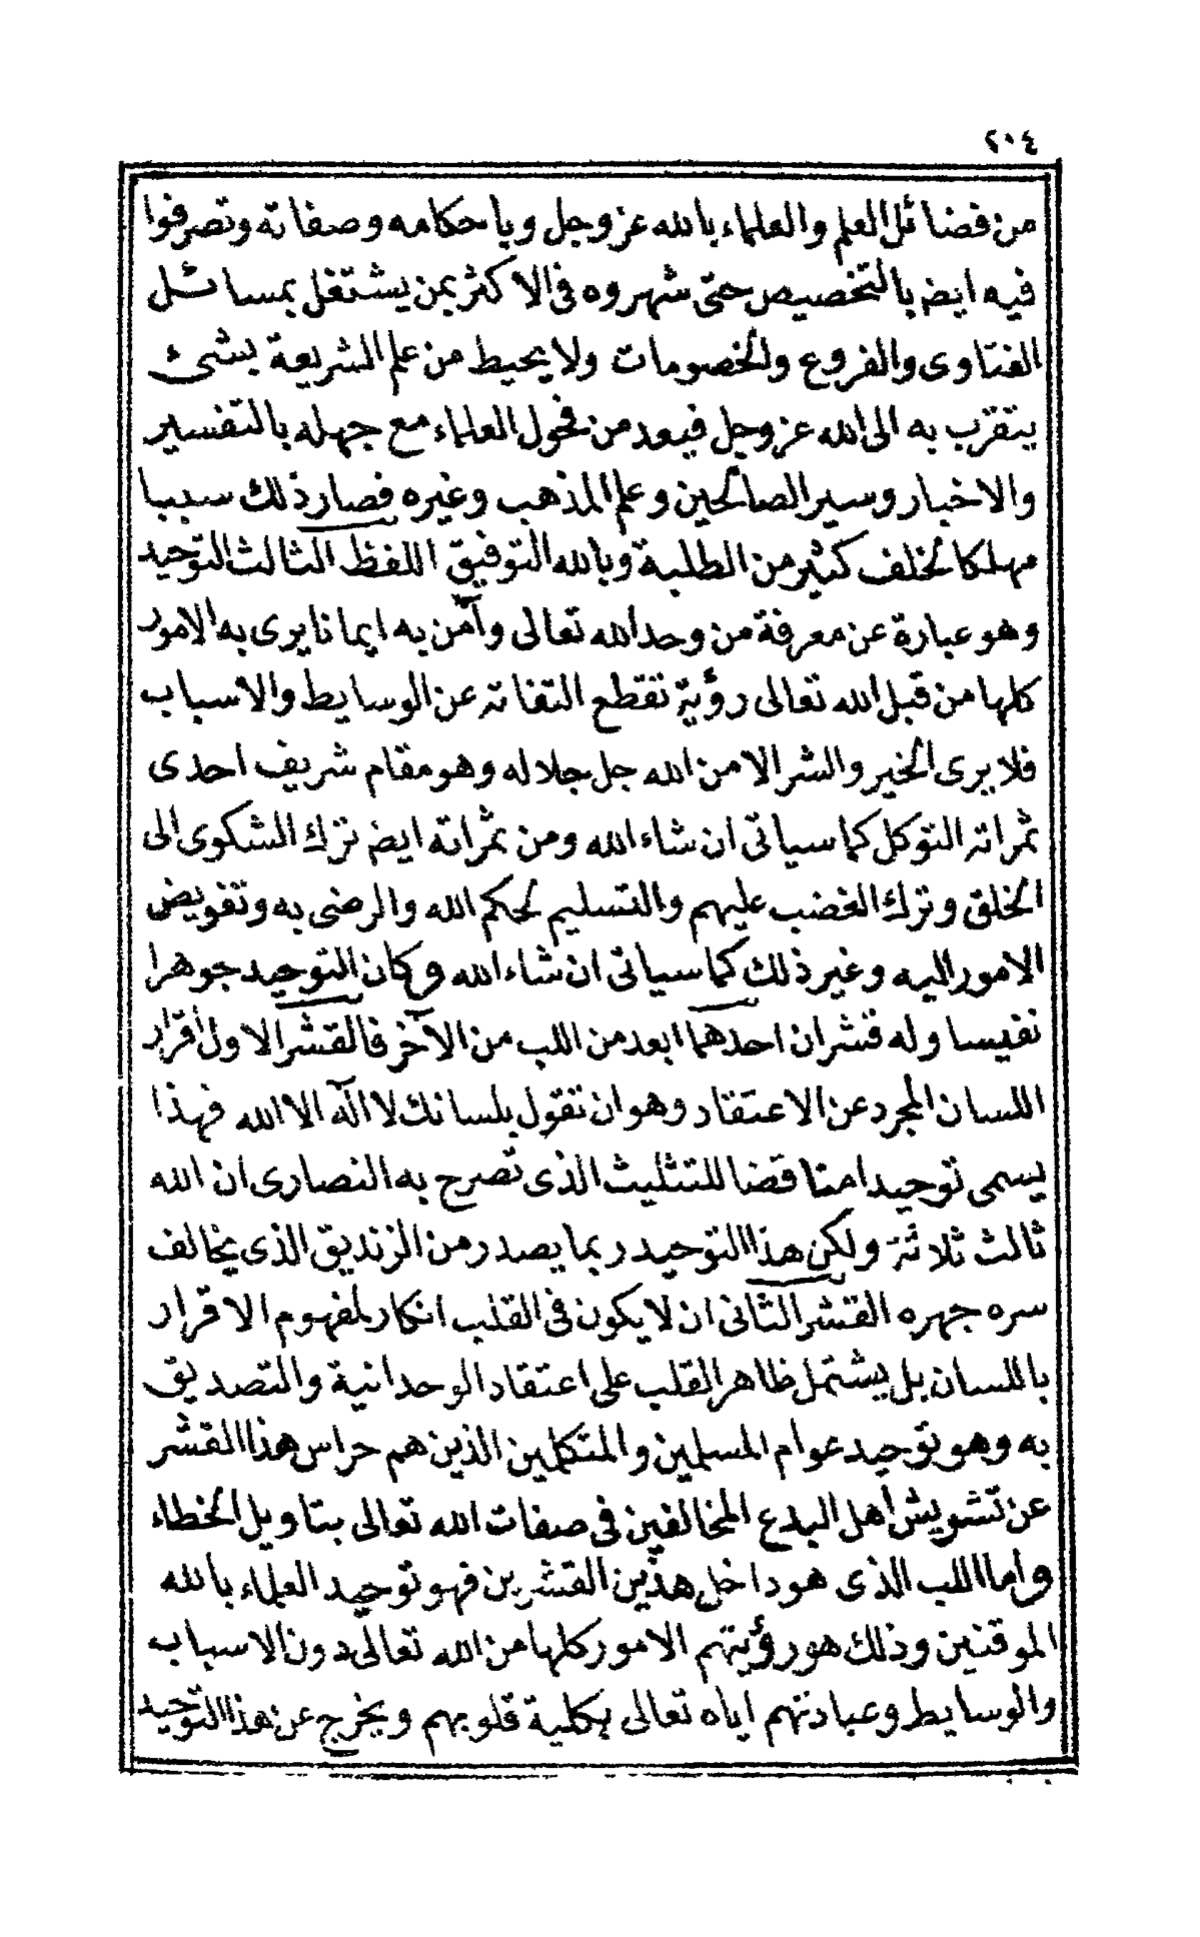 ٢٠٤
من فضائل العلم والعلماء بالله عز وجل وباحكامه وصفاته وتصرفوا
فيه ايض بالتخصيص حتى شهروه فى الاكثر بمن يشتغل بمسائل
الفتاوى والفروع والخصومات ولا يحيط من علم الشريعة بشئ
يتقرب به الى الله عز وجل فيعد من فحول العلماء مع جهله بالتفسير
والاخبار وسير الصالحين وعلم المذهب وغيره فصار ذلك سببا
مهلكا لخلف كثير من الطلبة وبالله التوفيق اللفظ الثالث التوحيد
وهو عبارة عن معرفة من وحد الله تعالى وآمن به ايمانا يرى به الامور
كلها من قبل الله تعالى رؤية تقطع التفاته عن الوسايط والاسباب
فلا يرى الخير والشر الا من الله جل جلاله وهو مقام شريف احدى
ثمراته التوكل كما سياتى ان شاء الله ومن ثمراته ايض ترك الشكوى الى
الخلق وترك الغضب عليهم والتسليم لحكم الله والرضى به وتفويض
الامور اليه وغير ذلك كما سياتى ان شاء الله وكان التوحيد جوهرا
نفيسا وله قشران احدهما ابعد من اللب من الآخر فالقشر الاول اقرار
اللسان المجرد عن الاعتقاد وهو ان تقول بلسانك لا اله الا الله فهذا
يسمى توحيدا مناقضا للتثليث الذى تصرح به النصارى ان الله
ثالث ثلاثة ولكن هذا التوحيد ربما يصدر من الزنديق الذى يخالف
سره جهره القشر الثانى ان لا يكون فى القلب انكار لمفهوم الاقرار
باللسان بل يشتمل ظاهر القلب على اعتقاد الوحدانية والتصديق
به وهو توحيد عوام المسلمين والمتكلمين الذين هم حراس هذا القشر
عن تشويش أهل البدع المخالفين فى صفات الله تعالى بتاويل الخطاء
واما اللب الذى هو داخل هذين القشرين فهو توحيد العلماء بالله
الموقنين وذلك هو رؤيتهم الامور كلها من الله تعالى دون الاسباب
والوسايط وعبادتهم اياه تعالى بكلية قلوبهم ويخرج عن هذا التوحيد